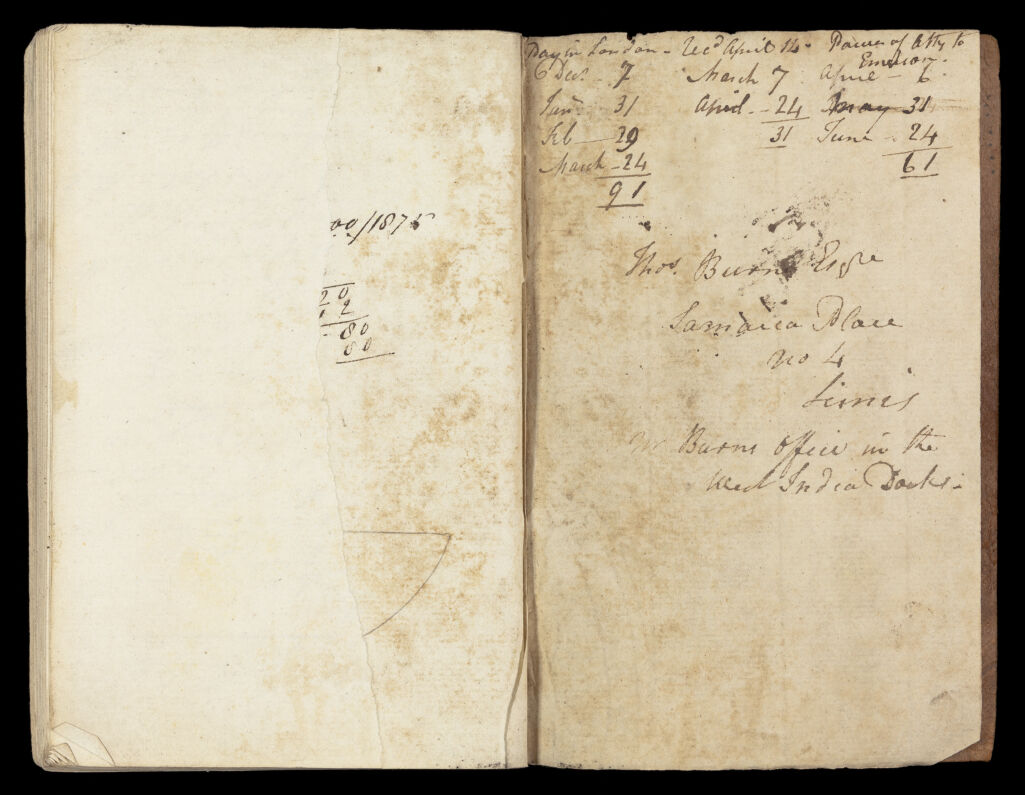 00/1875
20
2
80
80
Pay in London - Recd April 14 - Power of Atty to
6 Decr - 7 March 7 April - 6
Jany 31 April - 24 May 31
Feb - 29 31 June - 24
March - 24 61
91
Thos. Burns Esqre
Jamaica Place
no 4
Mr Burns Office in the
West India Docks -